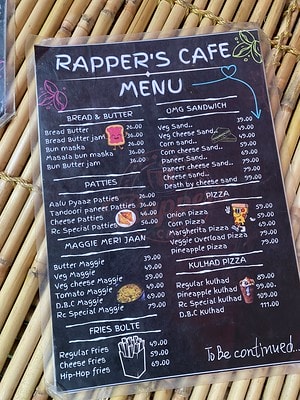 RAPPER'S CAFE
MENU
BREAD & BUTTER
Bread Butter 26.00
Bread Butter jam 36.00
Bun maska 26.00
Masala bun maska 36.00
Bun Butter jam 36.00
PATTIES
Aalu Pyaaz Patties 26.00
Tandoori paneer Patties 36.00
Cheese Patties 46.00
Rc Special Patties 56.00
MAGGIE MERI JAAN
Butter Maggie 39.00
Veg Maggie 49.00
Veg cheese Maggie 59.00
Tomato Maggie 49.00
D.B.C Maggie 69.00
Rc Special Maggie 79.00
FRIES BOLTE
Regular Fries 49.00
Cheese Fries 59.00
Hip-Hop fries 69.00
OMG SANDWICH
Veg Sand.. 39.00
Veg Cheese Sand.. 49.00
Corn sand..
Corn cheese Sand.. 59.00
Paneer Sand..
Paneer cheese Sand..
Cheese sand..
Death by cheese sand.. 99.00
PIZZA
Onion Pizza 59.00
Corn Pizza 59.00
Margherita Pizza
Veggie Overload Pizza
Pineapple Pizza 79.00
KULHAD PIZZA
Regular kulhad 89.00
Pineapple kulhad 99.00
Rc Special kulhad 109.00
D.B.C Kulhad 111.00
To Be continued...